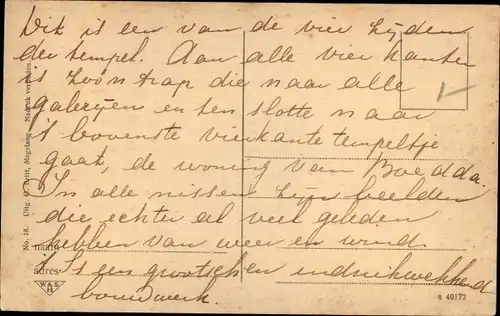 Dit is een van de vier zijden
der tempel. Aan alle vier kanten
is zoo'n trap die naar alle
galerijen en ten slotte naar
't bovenste vierkante tempeltje
gaat, de woning van Boedda.
In alle nissen zijn beelden
die echter al veel geleden
hebben van weer en wind.
't Is een grootschen indrukwekkend
bouwwerk.
naam
adres
No. 18. Uitg. Magelang. Nadruk verboden.
W&S
H
s 49172